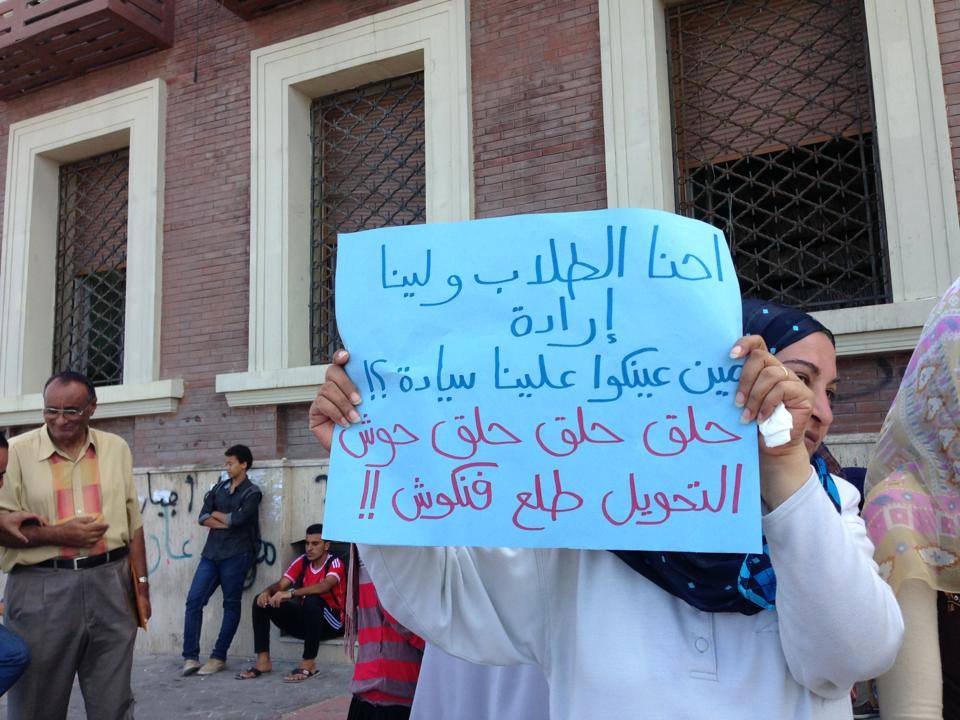 احنا الطلاب ولينا
إرادة
مين عينكوا علينا سيادة ؟!
حلق حلق حلق حوش
التحويل طلع فنكوش !!